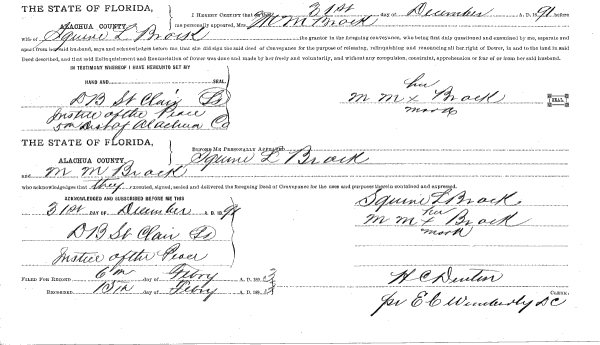 THE STATE OF FLORIDA,
ALACHUA COUNTY.
I HEREBY CERTIFY that on this 31st day of December A. D. 1891 before
me personally appeared, M M Brock
wife of Squire L Brock the grantor in the foregoing conveyance, who being first duly questioned and examined by me, separate and
apart from her said husband, says and acknowledges before me that she did sign the said deed of conveyance for the purpose of releasing, relinquishing and renouncing all her right of Dower, in and to the land in said
Deed described, and that said Relinquishment and Renunciation of Dower was done and made by her freely and voluntarily, and without any compulsion, constraint, apprehension or fear of or from her said husband.
IN TESTIMONY WHEREOF I HAVE HEREUNTO SET MY
HAND AND SEAL
D B St Clair Ls
Justice of the Peace
5th Dist of Alachua Co
her
M M x Brock SEAL
mark
THE STATE OF FLORIDA,
ALACHUA COUNTY,
BEFORE ME PERSONALLY APPEARED Squire L Brock
AND M M Brock
who acknowledges that they executed, signed, sealed and delivered the foregoing Deed of Conveyance for the uses and purposes therein contained and expressed.
ACKNOWLEDGED AND SUBSCRIBED BEFORE ME THIS
31st DAY OF December A. D. 1891
D B St Clair Ls
Justice of the Peace
Squire L Brock
her
M M x Brock
mark
FILED FOR RECORD 6th day of Febry A. D. 189
RECORDED 13th day of Febry A. D. 189
H C Denton
CLERK.
pr E C Wimberly D C